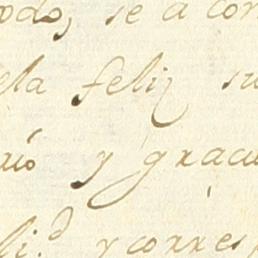 odo, se a con
ela feliz su
uió y gracu
li.d y corres